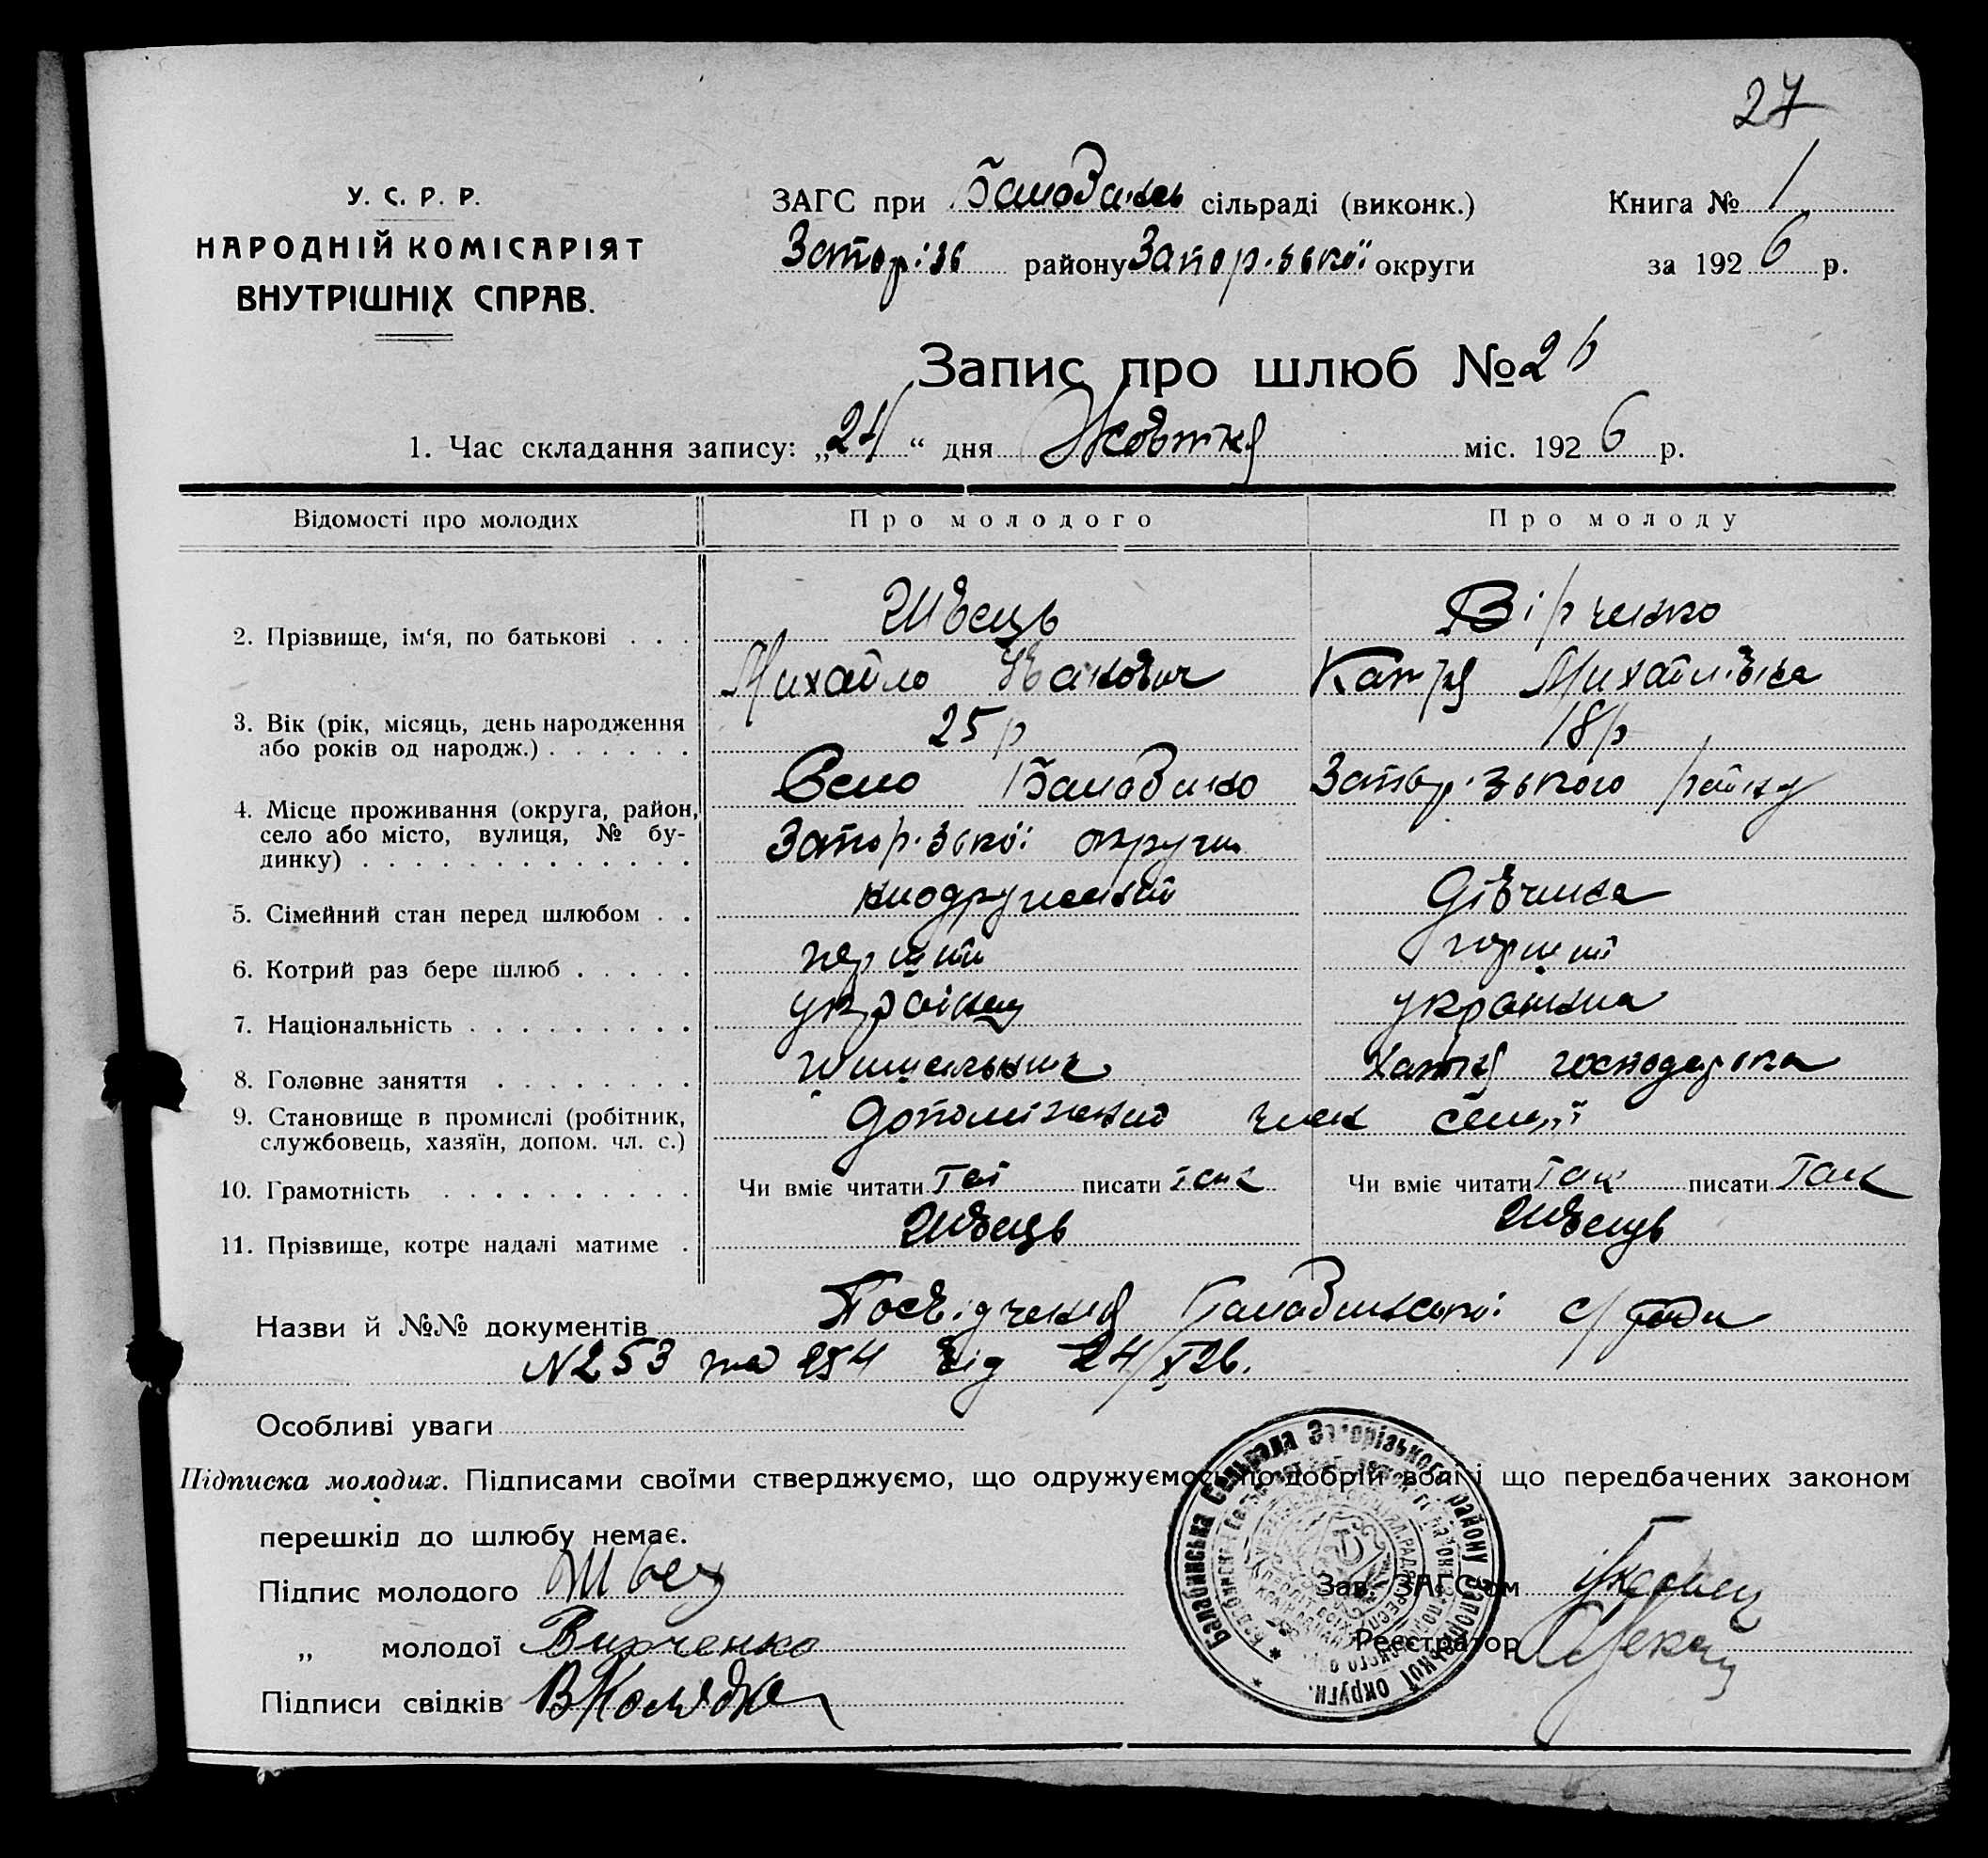 27
У. С. Р. Р.
НАРОДНІЙ КОМІСАРІЯТ
ВНУТРІШНІХ СПРАВ.
ЗАГС при Балабинськ сільраді (виконк.)
Запоріз району Запорізької округи
Книга № 1
за 1926 р.
Запис про шлюб № 26
1. Час складання запису: „24“ дня Жовтня міс. 1926 р.
Відомості про молодих Про молодого Про молоду
2. Прізвище, ім'я, по батькові . . . Швець Вірченко
Михайло Іванович Катря Михайлівна
3. Вік (рік, місяць, день народження або років од народж.) . . . . . . 25 р 18 р
4. Місце проживання (округа, район, село або місто, вулиця, № будинку) . . . . . . . . . . . . Село Балабино Запорізького району
Запорізької округи
5. Сімейний стан перед шлюбом . . Дівчина
6. Котрий раз бере шлюб . . . . . перший перший
7. Національність . . . . . . . . . українец українка
8. Головне заняття . . . . . . . . Хатня господарка
9. Становище в промислі (робітник, службовець, хазяїн, допом. чл. с.) Допоміжний член семї
10. Грамотність . . . . . . . . . . Чи вміє читати Так писати так Чи вміє читати Так писати Так
11. Прізвище, котре надалі матиме . Швець Швець
Назви й №№ документів Посвідчення Балабинської с/ради
N 253 та 254 від 24/X 26.
Особливі уваги
Підписка молодих. Підписами своїми стверджуємо, що одружуємось по добрій волі і що передбачених законом
перешкід до шлюбу немає.
Підпис молодого Швец
„ молодої Вирченко
Підписи свідків В Коляда
Зав. ЗАГС'ом
Реєстратор
Балабинська Сільрада Запорізького району Запорізької округи.